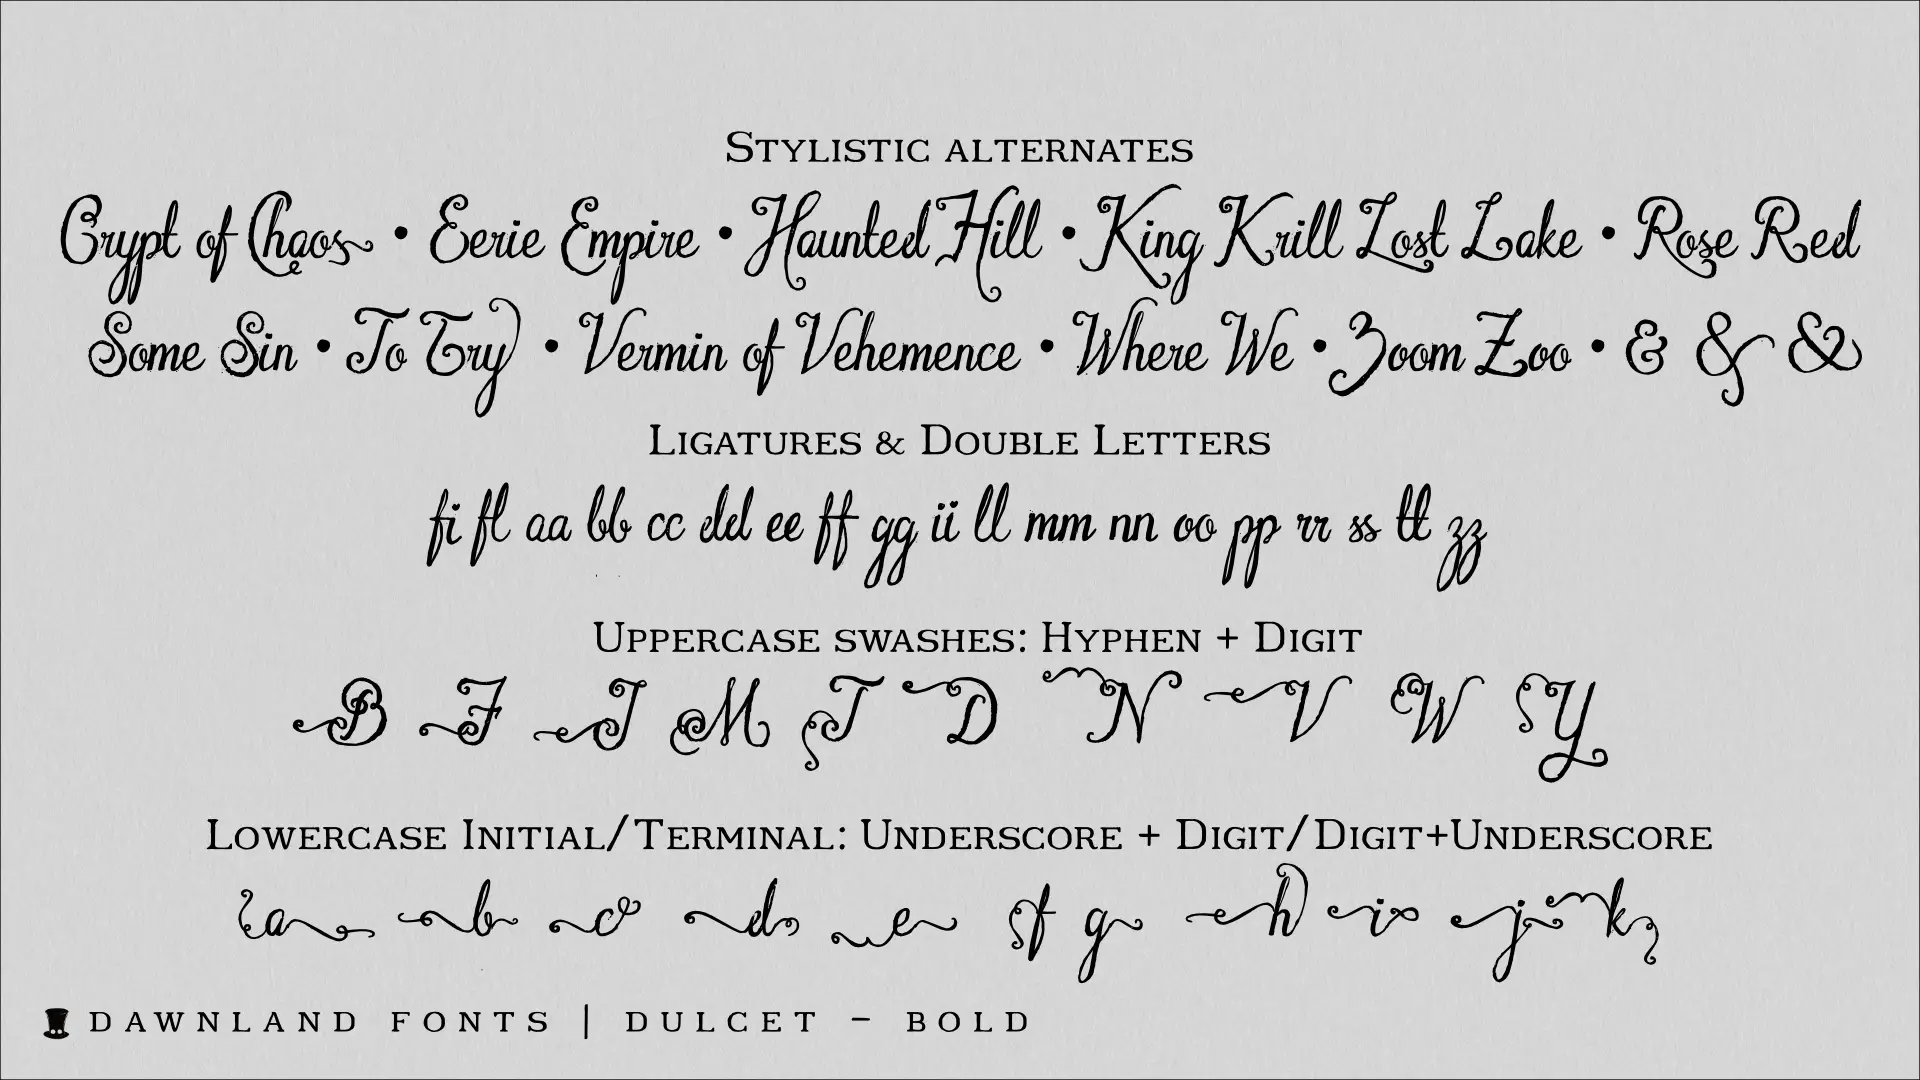 Stylistic alternates
Crypt of Chaos • Eerie Empire • Haunted Hill • King Krill Lost Lake • Rose Red
Some Sin • To Try • Vermin of Vehemence • Where We • Zoom Zoo • & & &
Ligatures & Double Letters
fi fl aa bb cc dd ee ff gg ii ll mm nn oo pp rr ss tt zz
Uppercase swashes: Hyphen + Digit
B F J M T D N V W Y
Lowercase Initial/Terminal: Underscore + Digit/Digit+Underscore
a b c d e f g h i j k
DAWNLAND FONTS | DULCET – BOLD